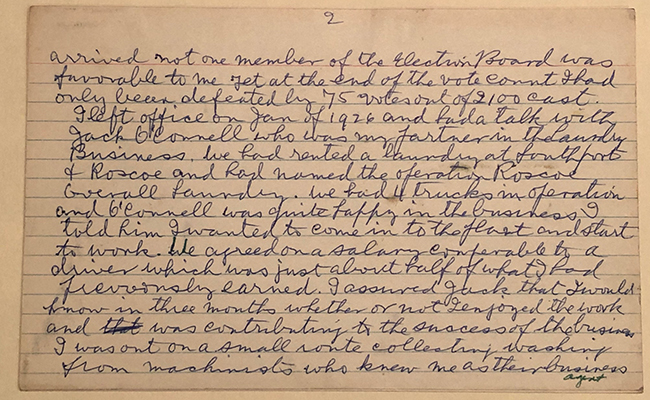 2
arrived not one member of the Election Board was
favorable to me yet at the end of the vote count I had
only been defeated by 75 votes out of 2100 cast.
I left office on Jan of 1926 and had a talk with
Jack O'Connell who was my partner in the laundry
Business. We had rented a laundry at Southport
& Roscoe and had named the operation Roscoe
Overall Laundry. We had 4 trucks in operation
and O'Connell was quite happy in the business I
told him I wanted to come in to the plant and start
to work. We agreed on a salary comperable to a
driver which was just about half of what I had
previously earned. I assured Jack that I would
know in three months whether or not I enjoyed the work
and that was contributing to the success of the business
I was out on a small route collecting washing
from machinists who knew me as their business
agent